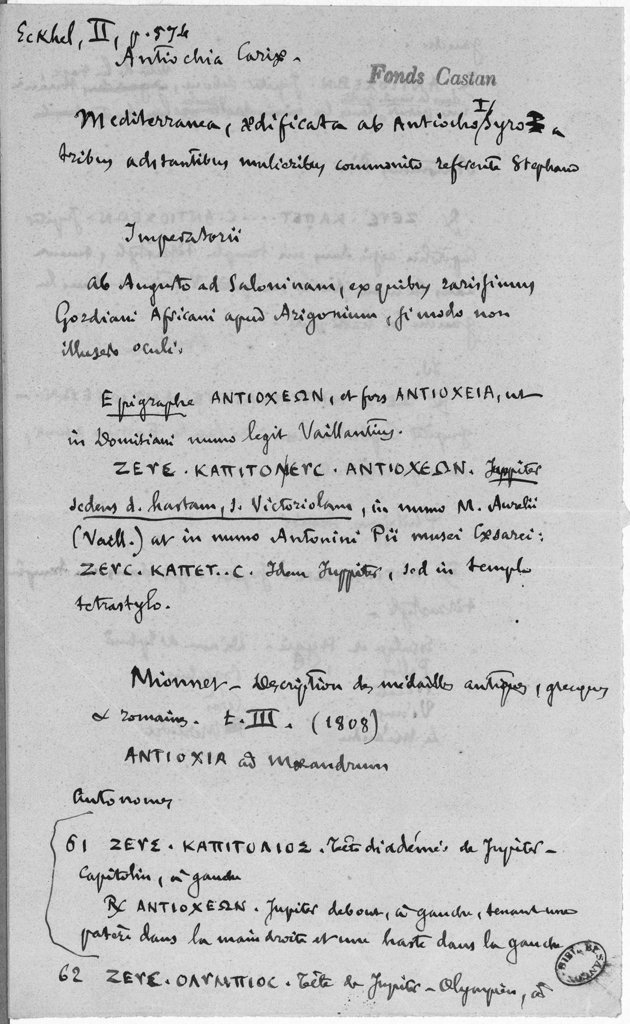 Eckhel, II, p. 574
Antiochia Cariæ.
Fonds Castan
Mediterranea, ædificata ab Antiocho I Syro a
tribus adstantibus mulieribus commonito referente Stephano
Imperatorii
ab Augusto ad Saloninam, ex quibus rarissimus
Gordiani Africani apud Arigonium, si modo non
illusere oculi.
Epigraphe ΑΝΤΙΟΧΕΩΝ, et fors ΑΝΤΙΟΧΕΙΑ, ut
in Domitiani numo legit Vaillantius.
ΖΕΥΣ . ΚΑΠΙΤΟΛΙΕΥC . ΑΝΤΙΟΧΕΩΝ. Juppiter
sedens d. hastam, s. Victoriolam, in numo M. Aurelii
(Vaill.) at in numo Antonini Pii musei Cæsarei:
ΖΕΥC. ΚΑΠΕΤ..C. Idem Juppiter, sed in templo
tetrastylo.
Mionnet – Description des médailles antiques, grecques
& romaines. t. III. (1808)
ANTIOXIA ad Mæandrum
Autonomes
61 ΖΕΥΣ . ΚΑΠΙΤΟΛΙΟΣ . Tête diadémée de Jupiter-
Capitolin, à gauche
℞ ΑΝΤΙΟΧΕΩΝ . Jupiter debout, à gauche, tenant une
patère dans la main droite et une haste dans la gauche
62 ΖΕΥΣ . ΟΛΥΜΠΙΟΣ . Tête de Jupiter-Olympien, à